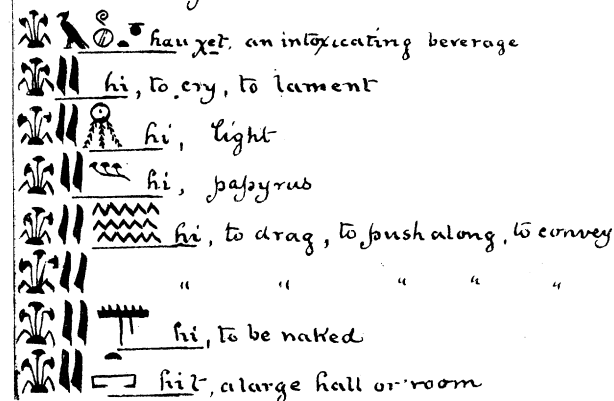 hau χet, an intoxicating beverage
hi, to cry, to lament
hi, light
hi, papyrus
hi, to drag, to push along, to convey
" " " " "
hi, to be naked
hit, a large hall or room